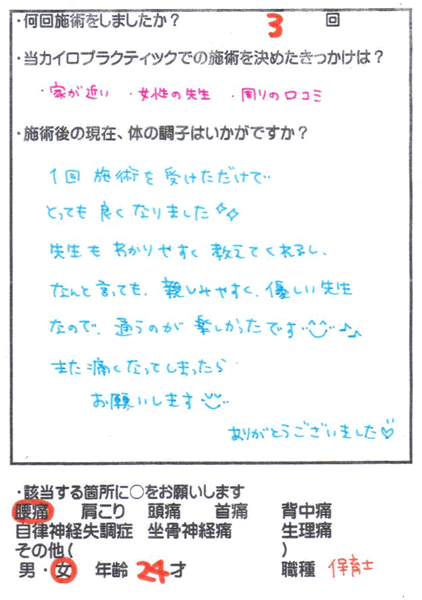 ・何回施術をしましたか? 3 回
・当カイロプラクティックでの施術を決めたきっかけは?
・家が近い ・女性の先生 ・周りの口コミ
・施術後の現在、体の調子はいかがですか?
1回 施術を受けただけで
とっても良くなりました
先生も わかりやすく 教えてくれるし、
なんと言っても、親しみやすく、優しい先生
なので、通うのが楽しかったです♪♪
また痛くなってしまったら
お願いします
ありがとうございました♡
・該当する箇所に○をお願いします
腰痛 肩こり 頭痛 首痛 背中痛
自律神経失調症 坐骨神経痛 生理痛
その他( )
男・女 年齢 24才 職種 保育士